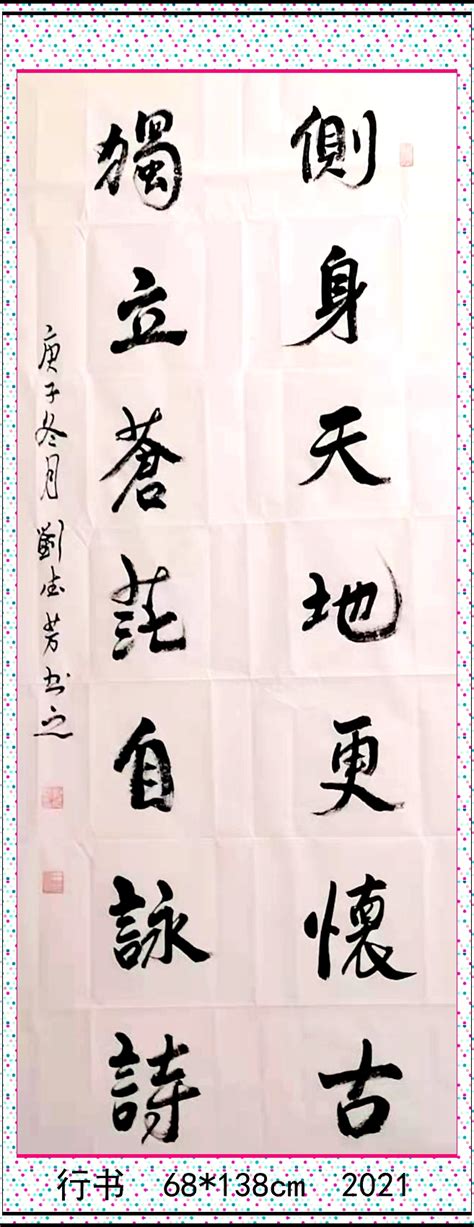 側身天地更懷古
獨立蒼茫自詠詩
庚子冬月劉志芳书之
行书 68*138cm 2021